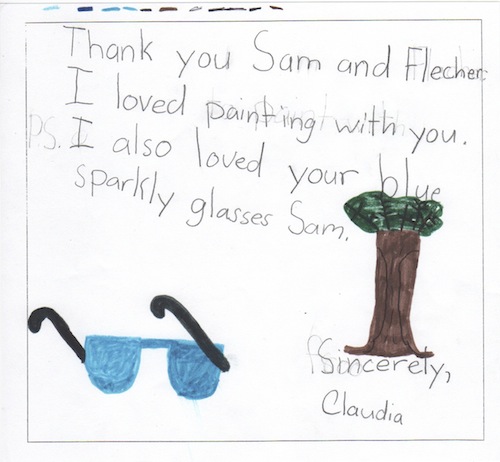 Thank you Sam and Flecher.
I loved painting with you.
PS. I also loved your blue
sparkly glasses Sam.
Sincerely,
Claudia